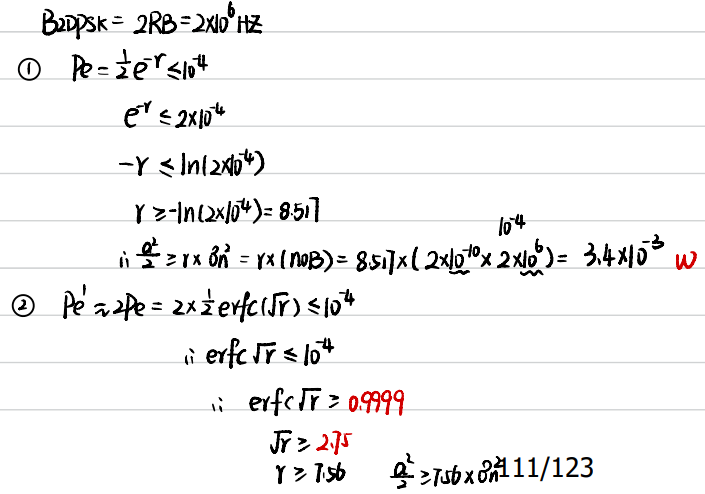 B2DPSK = 2RB = 2×10⁶HZ
① Pe = ½e⁻ʳ ≤ 10⁻⁴
e⁻ʳ ≤ 2×10⁻⁴
-r ≤ ln(2×10⁻⁴)
r ≥ -ln(2×10⁻⁴) = 8.517
10⁻⁴
∴ a²/2 ≥ r × δn² = r × (n0B) = 8.517 × (2×10⁻¹⁰ × 2×10⁶) = 3.4×10⁻³ W
② Pe' ≈ 2Pe = 2 × ½ erfc(√r) ≤ 10⁻⁴
∴ erfc√r ≤ 10⁻⁴
∴ erfc√r ≥ 0.9999
√r ≥ 2.75
r ≥ 7.56 a²/2 ≥ 7.56 × δn² 111/123